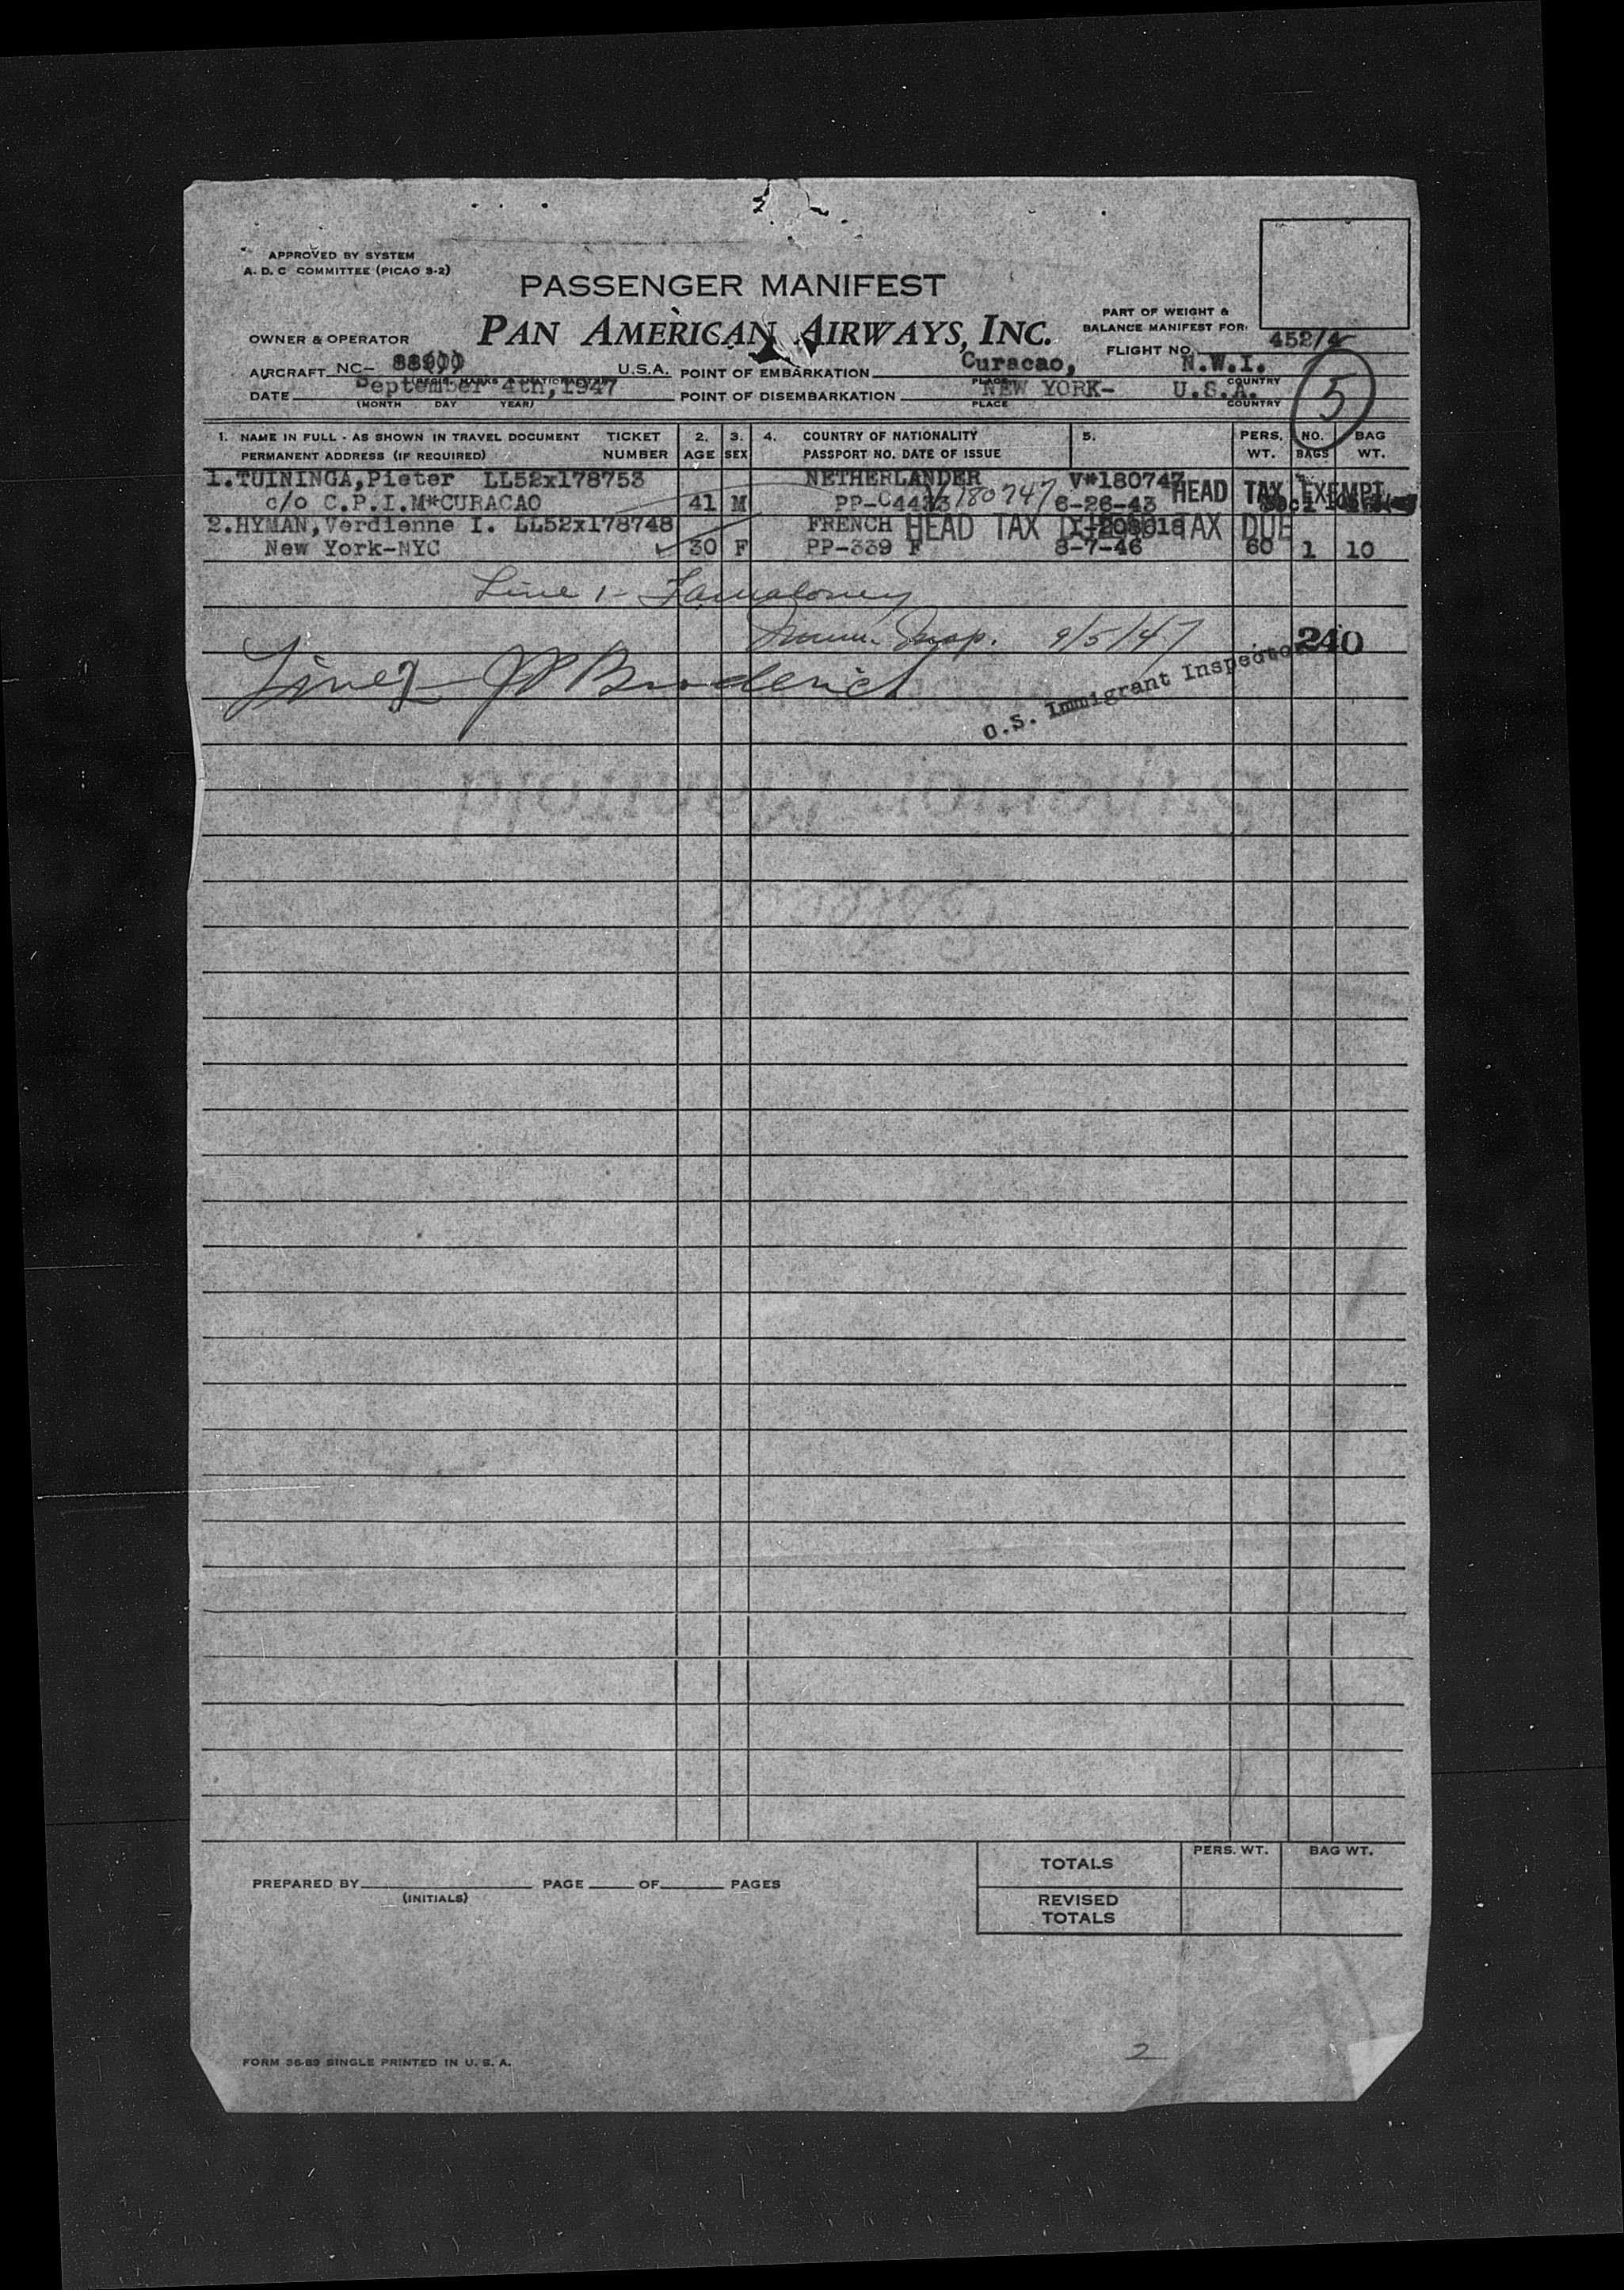 APPROVED BY SYSTEM
A. D. C COMMITTEE (PICAO 3-2)
PASSENGER MANIFEST
PAN AMERICAN AIRWAYS, INC.
PART OF WEIGHT &
BALANCE MANIFEST FOR:
OWNER & OPERATOR
FLIGHT NO. 452/4
AIRCRAFT NC- U.S.A. POINT OF EMBARKATION Curacao, N.W.I.
PLACE COUNTRY
DATE September 4th,1947 POINT OF DISEMBARKATION NEW YORK- U.S.A.
(MONTH DAY YEAR) PLACE COUNTRY
5
1. NAME IN FULL - AS SHOWN IN TRAVEL DOCUMENT TICKET 2. 3. 4. COUNTRY OF NATIONALITY 5. PERS. NO. BAG
PERMANENT ADDRESS (IF REQUIRED) NUMBER AGE SEX PASSPORT NO. DATE OF ISSUE WT. BAGS WT.
1.TUININGA,Pieter LL52x178753 NETHERLANDER V#180747
c/o C.P.I.M*CURACAO 41 M PP-C4433 180747 6-26-43 HEAD TAX EXEMPT
2.HYMAN,Verdienne I. LL52x178748 FRENCH HEAD TAX TAX DUE
New York-NYC 30 F PP-339 F 8-7-46 60 1 10
Line 1-
Immn. Insp. 9/5/47
240
Line 2- JP Broderick
U.S. Immigrant Inspector
Superior Manifold
TOTALS PERS. WT. BAG WT.
PREPARED BY PAGE OF PAGES
(INITIALS)
REVISED
TOTALS
2
FORM 36-89 SINGLE PRINTED IN U. S. A.